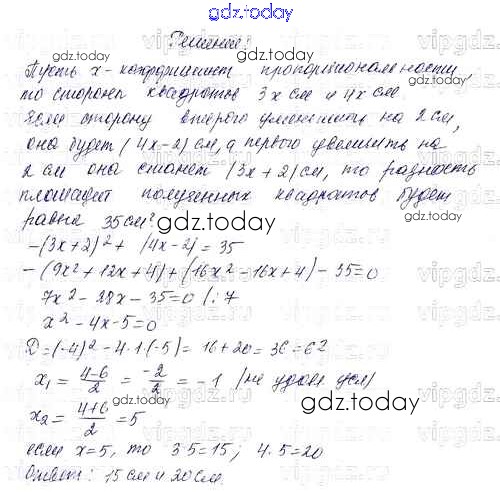 gdz.today
Решение:
gdz.today
Пусть x - коэффициент пропорциональности,
то стороны квадратов 3x см и 4x см
Если сторону второго уменьшить на 2 см,
она будет (4x-2) см, а первого увеличить на
2 см она станет (3x+2) см, то разность
площадей полученных квадратов будет
равна 35 см²
gdz.today
-(3x+2)² + (4x-2) = 35
-(9x²+12x+4)+(16x²-16x+4)-35=0
7x²-28x-35=0 |:7
x²-4x-5=0
D=(-4)²-4·1·(-5)=16+20=36=6²
gdz.today
x₁ = (4-6)/2 = -2/2 = -1 (не удов. усл)
x₂ = (4+6)/2 = 5
если x=5, то 3·5=15; 4·5=20
Ответ: 15 см и 20 см.
gdz.today